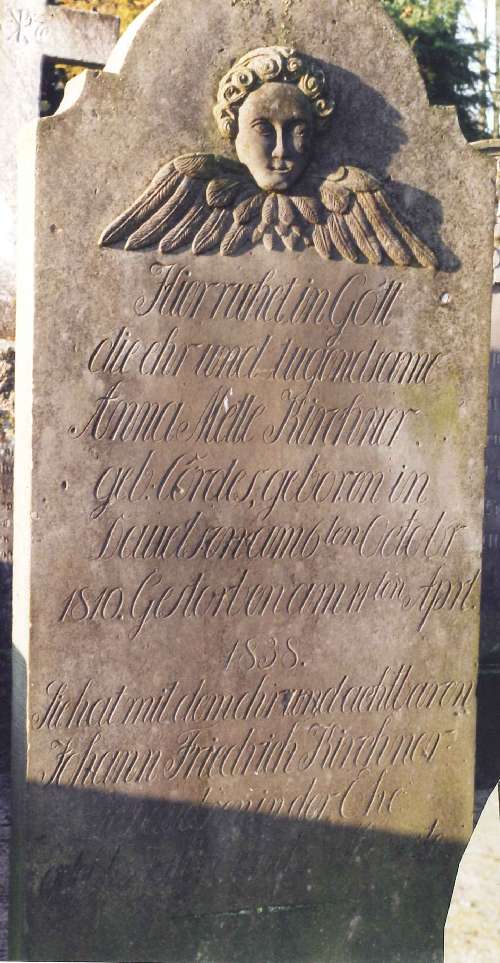 Hier ruhet in Gott
die ehr und tugendsame
Anna Mette Kirchner
geb: Cördes, geboren in
am 6ten Octobr
1810. Gestorben am 11ten April.
1838.
Sie hat mit dem ehr und achtbaren
Johann Friedrich Kirchner
in der Ehe